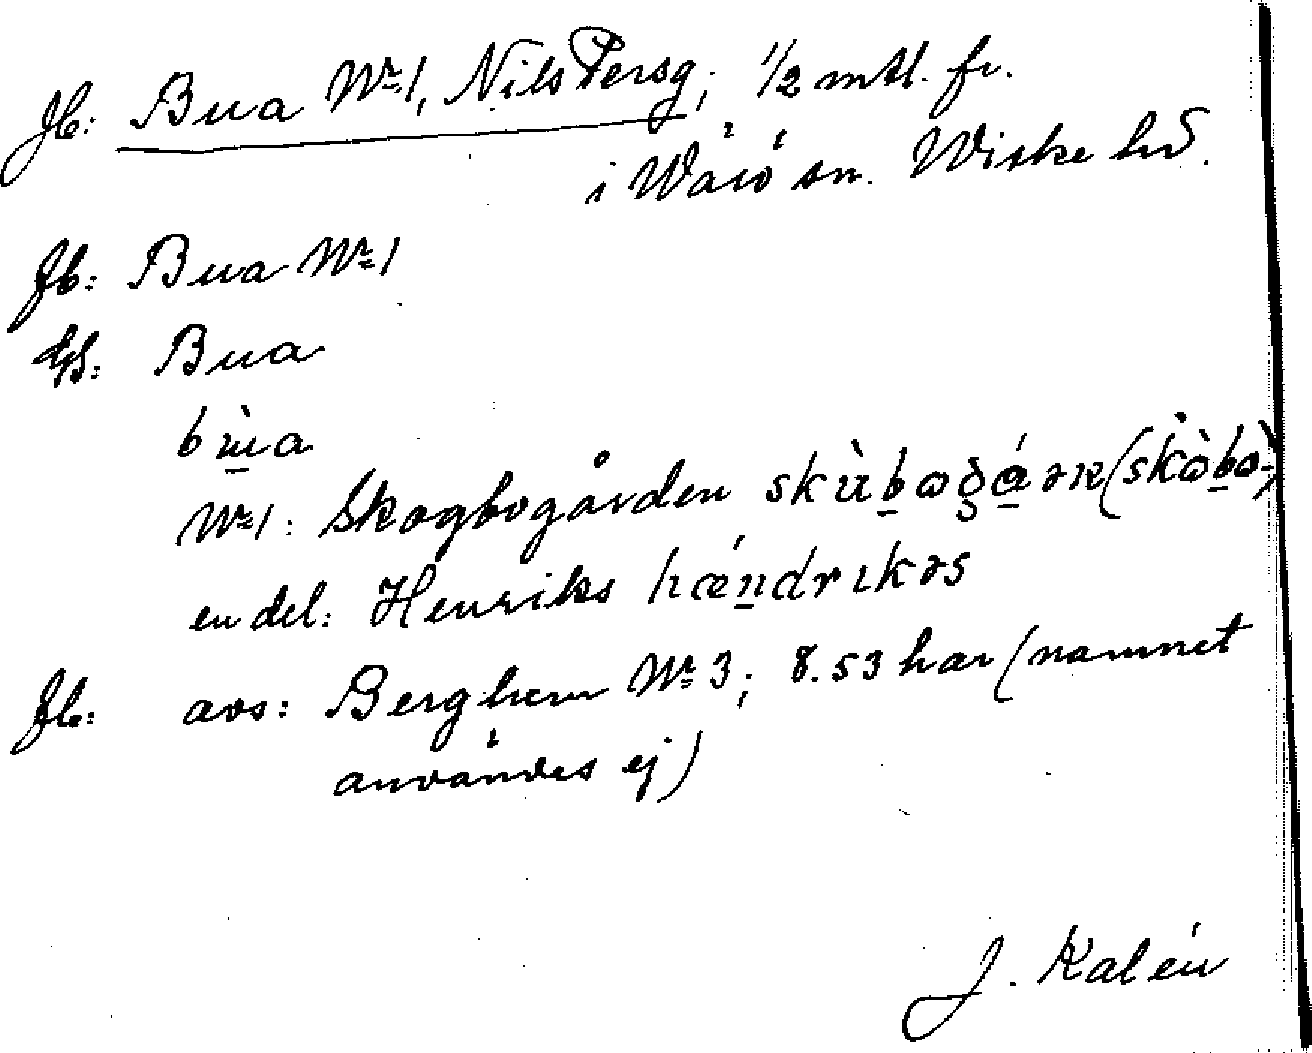 Jb: Bua Nr 1, Nils Persg; 1/2 mtl. fr.
i Wärö sn. Wiske hd.
Jb: Bua Nr 1
GS: Bua
bùa
Nr 1: Skogbogården skùbogá ən (skòbo-)
en del: Henriks hǽndrıkəs
Jb: avs: Berghem Nr 3; 8.53 har (namnet
användes ej)
J. Kalén